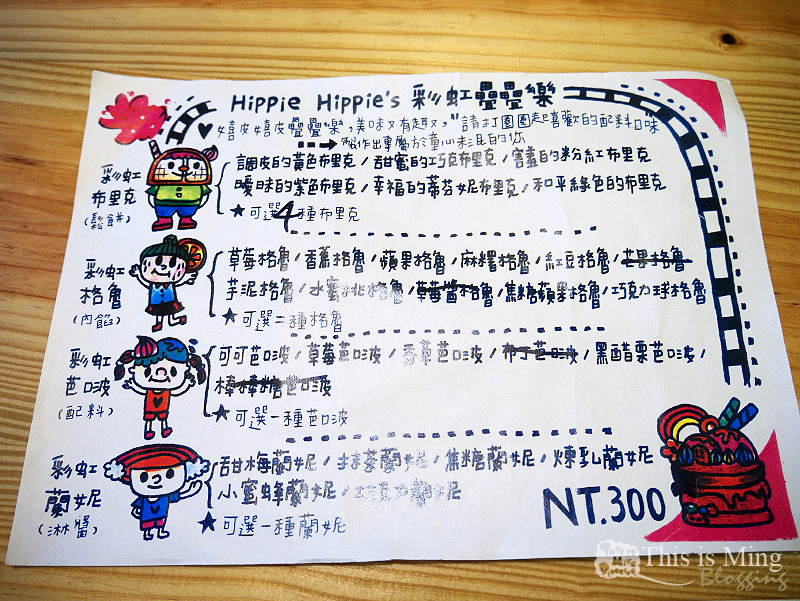 Hippie Hippie's 彩虹疊疊樂
♥嬉皮嬉皮疊疊樂,美味又有趣,"請打圈圈起喜歡的配料口味
製作出專屬於童心未泯的你
彩虹
布里克
(鬆餅)
調皮的黃色布里克/甜蜜的巧克布里克/害羞的粉紅布里克
曖昧的紫色布里克/幸福的蒂芬妮布里克/和平綠色的布里克
★可選4種布里克
彩虹
格魯
(內餡)
草莓格魯/香蕉格魯/蘋果格魯/麻糬格魯/紅豆格魯/芒果格魯
芋泥格魯/水蜜桃格魯/草莓醬格魯/焦糖蘋果格魯/巧克力球格魯
★可選二種格魯
彩虹
芭啵
(配料)
可可芭啵/草莓芭啵/香草芭啵/布丁芭啵/黑醋栗芭啵/
棒棒糖芭啵
★可選一種芭啵
彩虹
蘭妮
(淋醬)
甜梅蘭妮/抹茶蘭妮/焦糖蘭妮/煉乳蘭妮
小蜜蜂蘭妮/巧克力蘭妮
★可選一種蘭妮
NT.300
This is Ming
Blogging